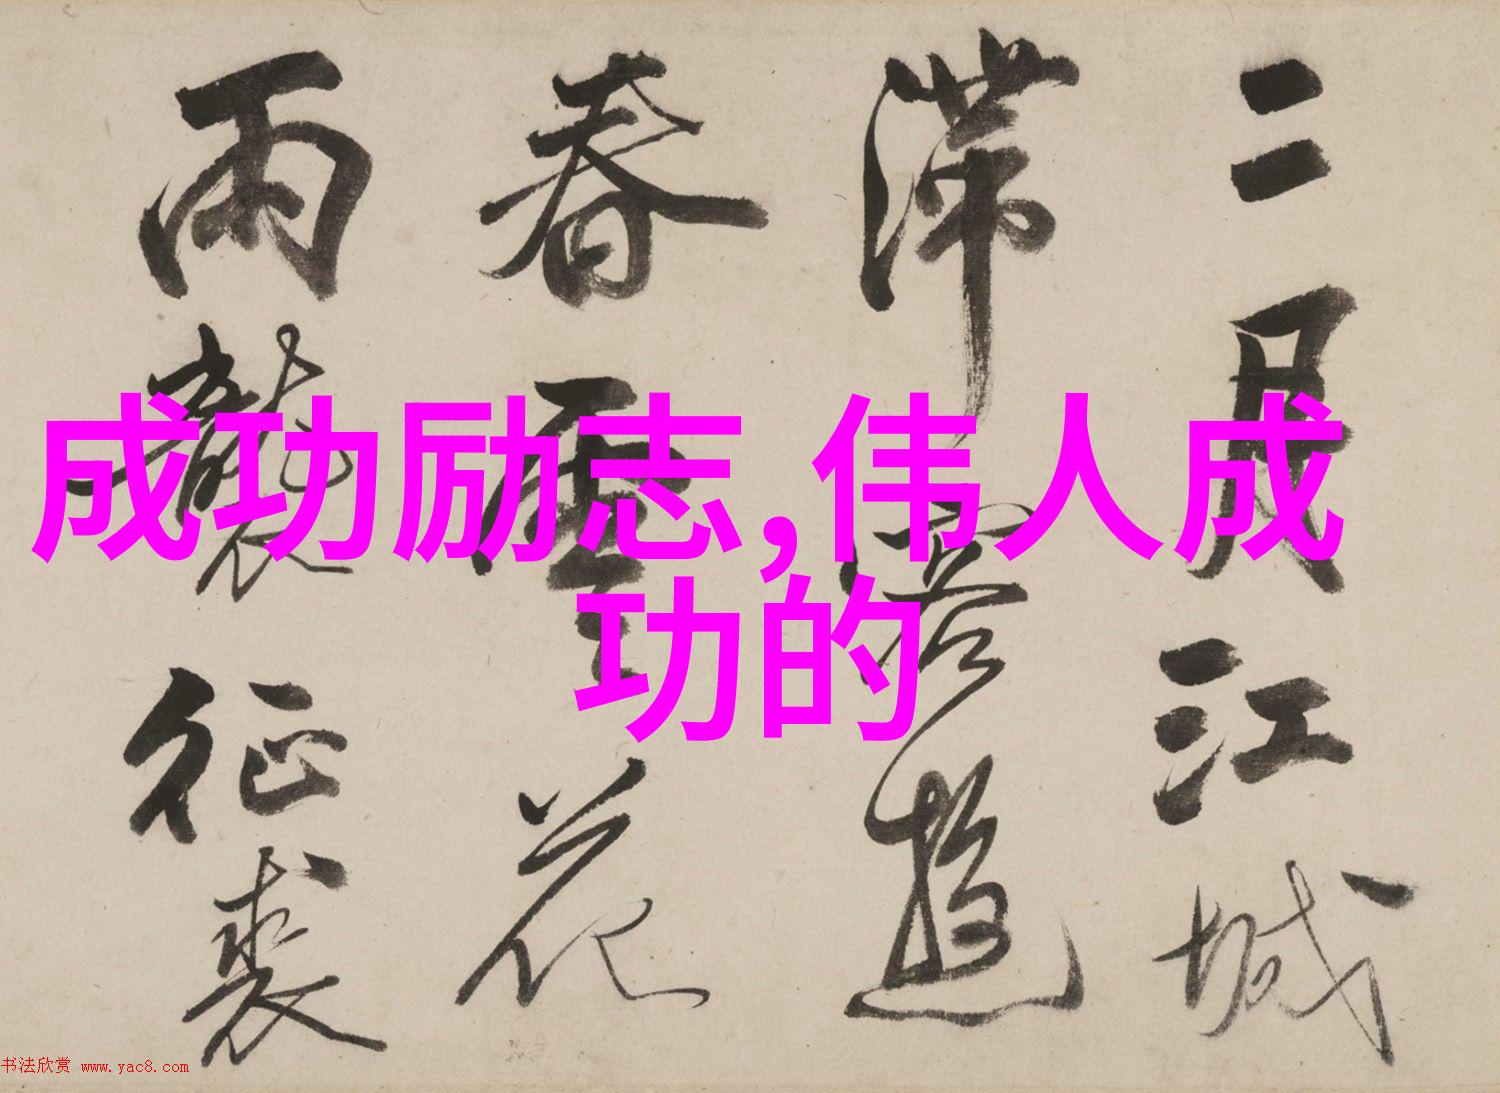 二月江城
滞客遊
春雲花
雨襲征裘
成功励志,伟人成
功的
书法欣赏 www.yac8.com